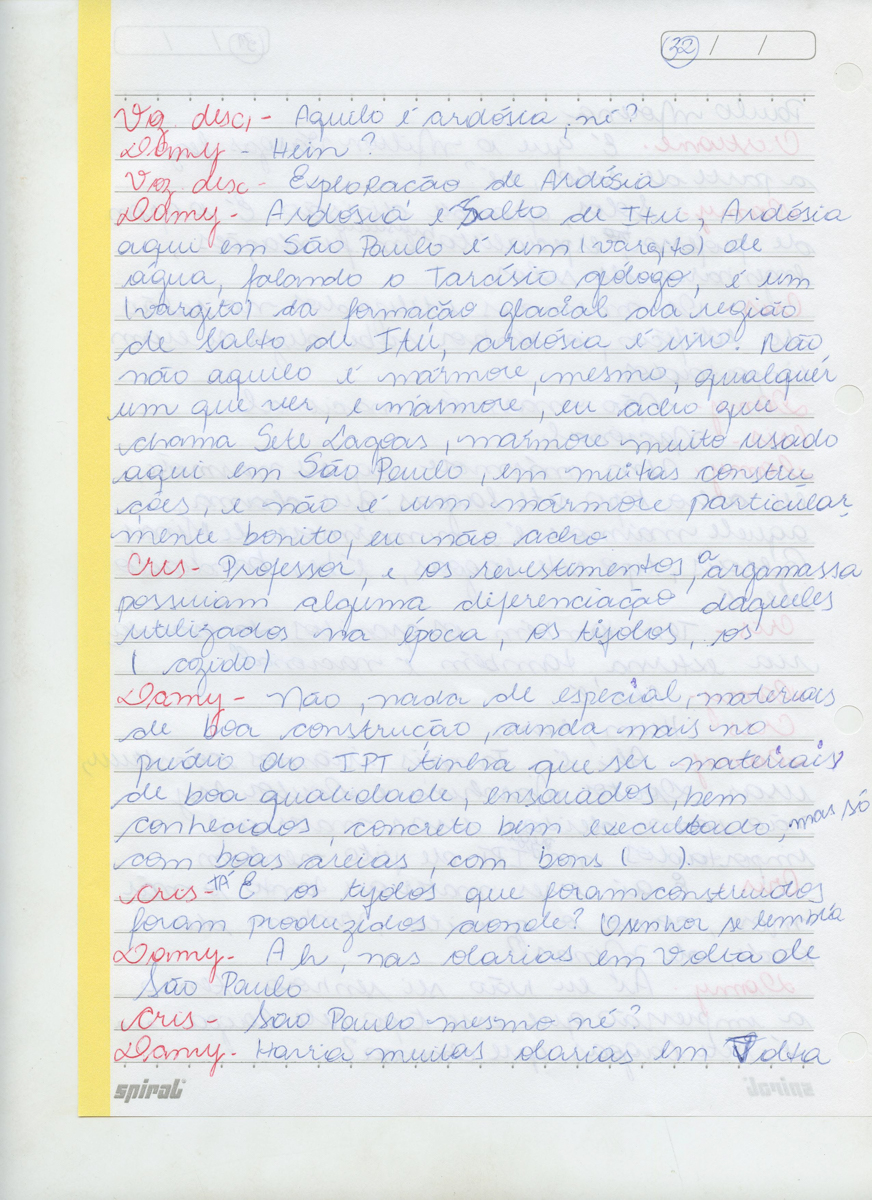 32 / /
Voz desc, - Aquelo é ardósia, né?
Damy - Hein?
Voz desc - Exploração de Ardósia
Damy - Ardósia é Salto de Itú, Ardósia
aqui em São Paulo é um (vargito) de
água, falando o Tarcísio geólogo, é um
(vargito) da formação glacial da região
de Salto de Itú, ardósia é isso. Não
não aquelo é mármore, mesmo, qualquer
um que ver, é mármore, eu acho que
chama Sete Lagoas, mármore muito usado
aqui em São Paulo, em muitas constru
ções, e não é um mármore particular
mente bonito, eu não acho
Cris - Professor, e os revestimentos, a argamassa
possuiam alguma diferenciação daqueles
utilizados na época, os tijolos, os
( cozido)
Damy - Não, nada de especial, materiais
de boa construção, ainda mais no
prédio do IPT tinha que ser materiais
de boa qualidade, ensaiados, bem
conhecidos, concreto bem executado, mas só
com boas areias, com bons ( ).
Cris - TÁ E os tijolos que foram construidos
foram produzidos aonde? O senhor se lembra
Damy - Ah, nas olarias em Volta de
São Paulo
Cris - São Paulo mesmo né?
Damy - Havia muitas olarias em Volta
spiral